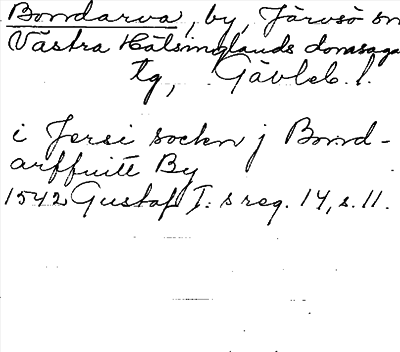 Bondarva, by, Järvsö sn
Västra Hälsinglands domsaga
tg, Gävleb. l.
i Jersi sockn j Bond-
arffuitt By
1542 Gustaf I:s reg. 14, s. 11.